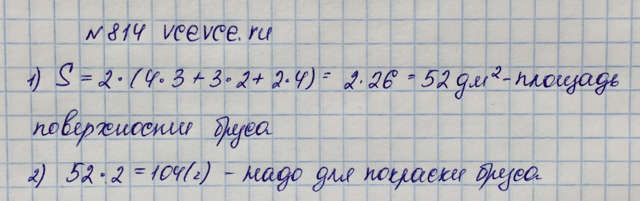 №814 vcevce.ru
1) S = 2·(4·3+3·2+2·4) = 2·26 = 52 дм² - площадь
поверхности бруса
2) 52·2 = 104(г) - надо для покраски бруса.